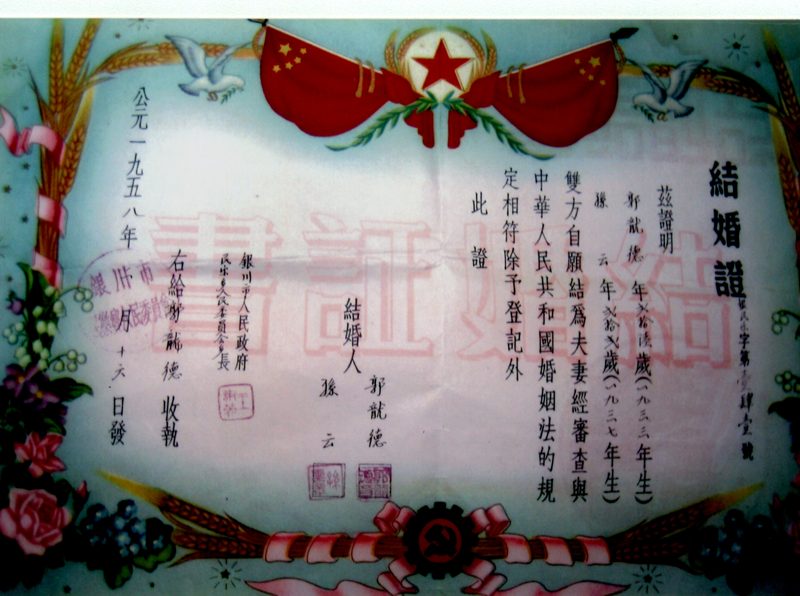 結婚證
字第壹肆壹號
茲證明
郭龍德 年貳拾陸歲(一九三三年生)
孫云 年貳拾貳歲(一九三七年生)
雙方自願結爲夫妻經審查與
中華人民共和國婚姻法的規
定相符除予登記外
此證
結婚人
郭龍德
孫云
銀川市人民政府
右給郭龍德收執
公元一九五八年
月十六日發
銀川市
結婚証書